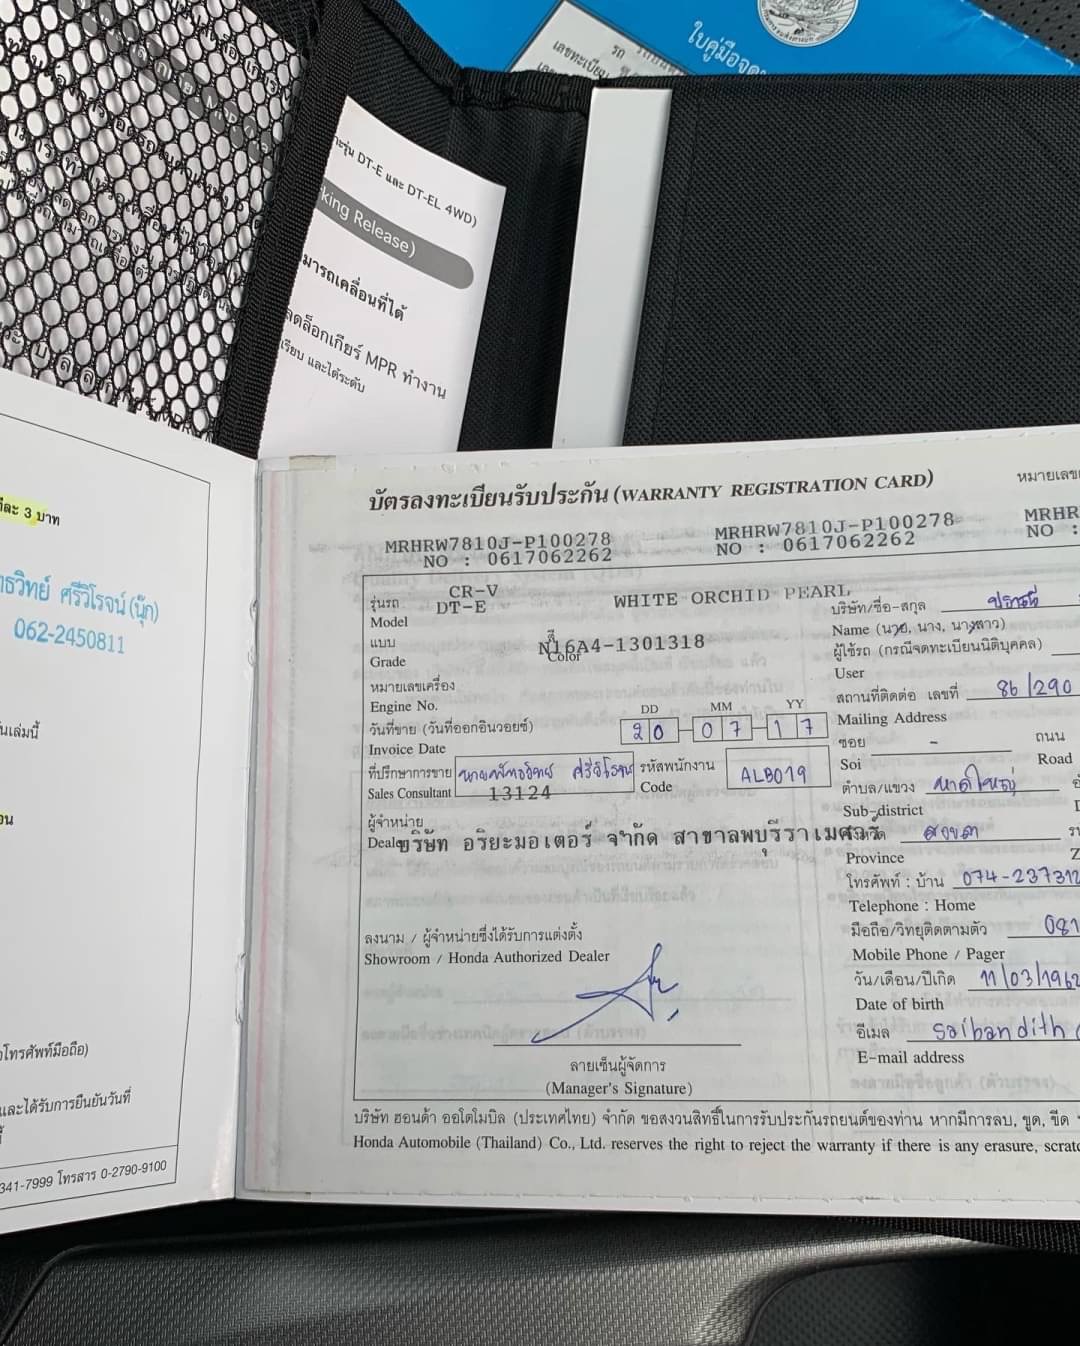 ใบคู่มือจด
รถ
เลขทะเบียน
ะรุ่น DT-E และ DT-EL 4WD)
king Release)
มารถเคลื่อนที่ได้
ลดล็อกเกียร์ MPR ทำงาน
เรียบ และได้ระดับ
ละ 3 บาท
ธวิทย์ ศรีวิโรจน์ (นุ๊ก)
062-2450811
นเล่มนี้
อโทรศัพท์มือถือ)
และได้รับการยืนยันวันที่
341-7999 โทรสาร 0-2790-9100
บัตรลงทะเบียนรับประกัน (WARRANTY REGISTRATION CARD)
หมายเลข
MRHRW7810J-P100278
NO : 0617062262
MRHRW7810J-P100278
NO : 0617062262
MRHR
NO :
รุ่นรถ CR-V
Model DT-E
WHITE ORCHID PEARL
แบบ
Grade
สี
Color
N16A4-1301318
หมายเลขเครื่อง
Engine No.
วันที่ขาย (วันที่ออกอินวอยซ์)
Invoice Date
DD MM YY
20 07 17
ที่ปรึกษาการขาย
Sales Consultant
ศรีวิโรจน์
13124
รหัสพนักงาน
Code
ALB019
ผู้จำหน่าย
Dealer
บริษัท อริยะมอเตอร์ จำกัด สาขาลพบุรีราเมศวร์
ลงนาม / ผู้จำหน่ายซึ่งได้รับการแต่งตั้ง
Showroom / Honda Authorized Dealer
ลายเซ็นผู้จัดการ
(Manager's Signature)
บริษัท/ชื่อ-สกุล
Name (นาย, นาง, นางสาว)
ผู้ใช้รถ (กรณีจดทะเบียนนิติบุคคล)
User
สถานที่ติดต่อ เลขที่ 86/290
Mailing Address
ซอย - ถนน
Soi Road
ตำบล/แขวง หาดใหญ่
Sub-district
สงขลา
Province
โทรศัพท์ : บ้าน 074-237312
Telephone : Home
มือถือ/วิทยุติดตามตัว 081
Mobile Phone / Pager
วัน/เดือน/ปีเกิด 11/03/1962
Date of birth
อีเมล saibandith
E-mail address
บริษัท ฮอนด้า ออโตโมบิล (ประเทศไทย) จำกัด ขอสงวนสิทธิ์ในการรับประกันรถยนต์ของท่าน หากมีการลบ, ขูด, ขีด
Honda Automobile (Thailand) Co., Ltd. reserves the right to reject the warranty if there is any erasure, scratc